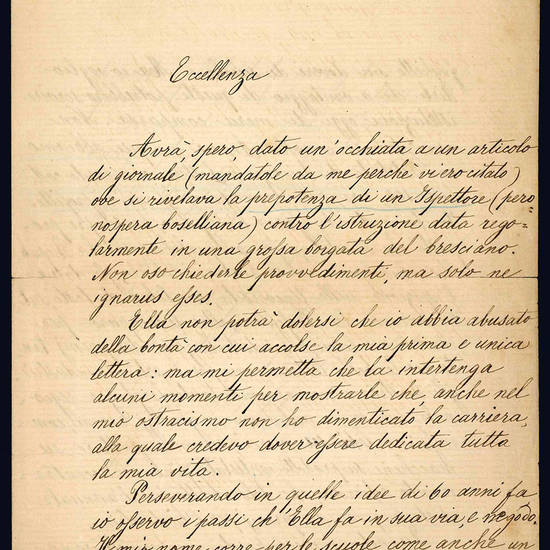 Eccellenza
Avrà, spero, dato un'occhiata a un articolo
di giornale (mandatole da me perchè vi ero citato)
ove si rivelava la prepotenza di un Ispettore (pero=
nospera boselliana) contro l'istruzione data rego=
larmente in una grossa borgata del bresciano.
Non oso chiederle provvedimenti, ma solo ne
ignarus esses.
Ella non potrà dolersi che io abbia abusato
della bontà con cui accolse la mia prima e unica
lettera: ma mi permetta che la intertenga
alcuni momenti per mostrarle che, anche nel
mio ostracismo non ho dimenticato la carriera,
alla quale credevo dover essere dedicata tutta
la mia vita.
Perseverando in quelle idee di 60 anni fa
io osservo i passi ch'Ella fa in sua via, e ne godo.
Il mio nome corre per le scuole come anche un